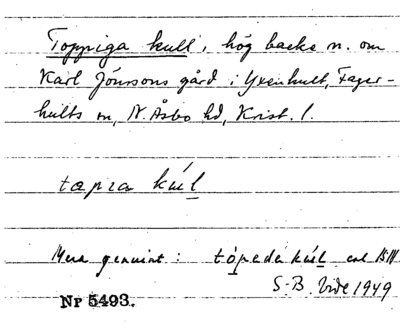 Toppiga kull, hög backe n. om
Karl Jönssons gård i Yxenhult, Fager-
hults sn, N. Åsbo hd, Krist. l.
tɑpɪɑ kúl
Mera genuint: tópede kúl enl.
S-B. Vide 1949
Nr 5493.